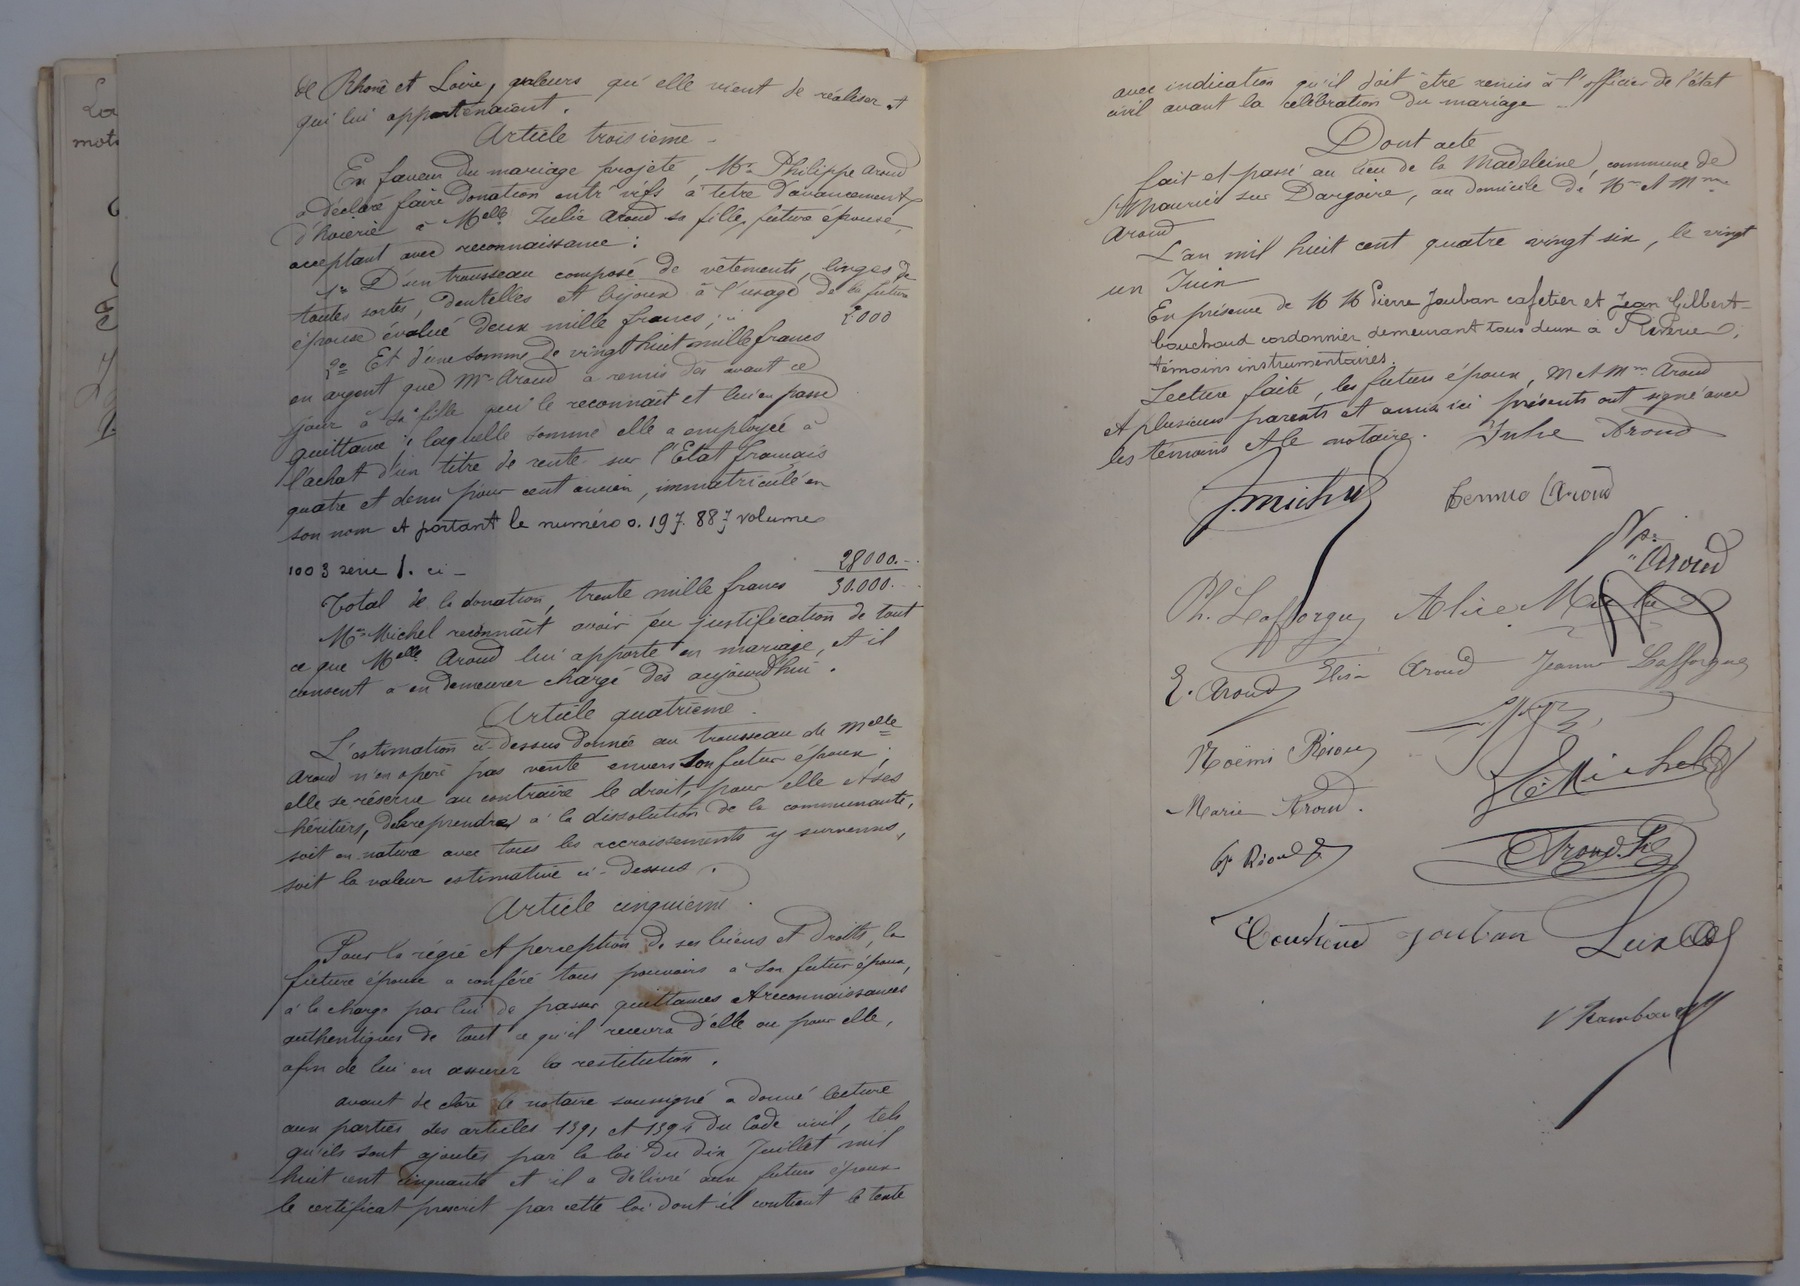 de Rhône et Loire, valeurs qu'elle vient de réaliser et
qui lui appartenaient.
Article troisième
En faveur du mariage projeté, Mr Philippe Aroud
a déclaré faire donation entre vifs à titre d'avancement
d'hoierie à Melle Julie Aroud sa fille, future épouse,
acceptant avec reconnaissance :
1° D'un trousseau composé de vêtements, linges de
toutes sortes, dentelles et bijoux à l'usage de la future
épouse évalué deux mille francs, ci 2000
2° Et d'une somme de vingt huit mille francs
en argent que Mr Aroud a remis dès avant ce
jour à sa fille qui le reconnait et lui en passe
quittance ; laquelle somme elle a employée à
l'achat d'un titre de rente sur l'Etat français
quatre et demi pour cent ancien, immatriculé en
son nom et portant le numéro 0.197.887 volume
1003 série 1. ci _ 28000._
Total de la donation, trente mille francs 30.000._
Mr Michel reconnait avoir eu justification de tout
ce que Melle Aroud lui apporte en mariage, et il
consent à en demeurer chargé dès aujourd'hui.
Article quatrième.
L'estimation ci-dessus donnée au trousseau de Melle
Aroud n'en opère pas vente envers son futur époux ;
elle se réserve au contraire le droit, pour elle et ses
héritiers, de le reprendre à la dissolution de la communauté,
soit en nature avec tous les accroissements y survenus,
soit la valeur estimative ci-dessus.
Article cinquième.
Pour la régie et perception de ses biens et droits, la
future épouse a conféré tous pouvoirs à son futur époux,
à la charge par lui de passer quittances et reconnaissances
authentiques de tout ce qu'il recevra d'elle ou pour elle,
afin de lui en assurer la restitution.
Avant de clore le notaire soussigné a donné lecture
aux parties des articles 1391 et 1394 du Code civil, tels
qu'ils sont ajoutés par la loi du dix Juillet mil
huit cent cinquante et il a délivré aux futurs époux
le certificat prescrit par cette loi dont il contient le texte
avec indication qu'il doit être remis à l'officier de l'état
civil avant la célébration du mariage
Dont acte
fait et passé au lieu de la Madeleine, commune de
St Maurice sur Dargoire, au domicile de Mr et Mme
Aroud
L'an mil huit cent quatre vingt six, le vingt
un Juin
En présence de M M Pierre Jouban cafetier et Jean Gilbert
bouchoud cordonnier demeurant tous deux à
témoins instrumentaires.
Lecture faite, les futurs époux, M et Mme Aroud
et plusieurs parents et amis ici présents ont signé avec
les témoins et le notaire. Julie Aroud
J. Michel Aroud
Aroud
Ph. Lafforgue Alice
E. Aroud Elisa Aroud Jeanne Lafforgue
Noëmi
E. Michel
Marie Aroud.
Aroud. Ph
Bouchoud Jouban